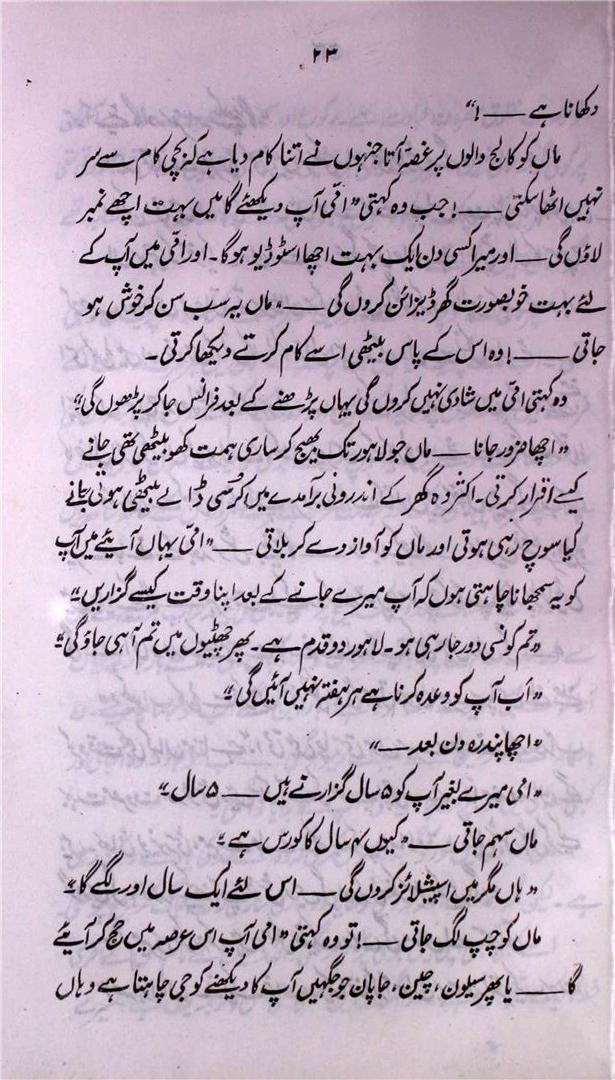 ۲۳
دکھانا ہے ——!“
ماں کو کالج والوں پر غصّہ آتا جنہوں نے اتنا کام دیا ہے کہ بچی کام سے سر
نہیں اٹھا سکتی ——! جب وہ کہتی ”امّی آپ دیکھئے گا میں بہت اچھے نمبر
لاؤں گی —— اور میرا کسی دن ایک بہت اچھا اسٹوڈیو ہوگا۔ اور امّی میں آپ کے
لئے بہت خوبصورت گھر ڈیزائن کروں گی ——“ ماں یہ سب سن کر خوش ہو
جاتی ——! وہ اس کے پاس بیٹھی اسے کام کرتے دیکھا کرتی۔
وہ کہتی امّی میں شادی نہیں کروں گی یہاں پڑھنے کے بعد فرانس جا کر پڑھوں گی“
”اچھا ضرور جانا —— ماں جو لاہور تک بھیج کر ساری ہمت کھو بیٹھی تھی جانے
کیسے اقرار کرتی۔ اکثر وہ گھر کے اندرونی برآمدے میں کرُسی ڈالے بیٹھی ہوئی جانے
کیا سوچ رہی ہوتی اور ماں کو آواز دے کر بلاتی —— ”امّی یہاں آیئے میں آپ
کو یہ سمجھانا چاہتی ہوں کہ آپ میرے جانے کے بعد اپنا وقت کیسے گزاریں“
”تم کونسی دور جا رہی ہو۔ لاہور دو قدم ہے۔ پھر چھٹیوں میں تم آہی جاؤ گی“
”اب آپ کو وعدہ کرنا ہے ہر ہفتہ نہیں آئیں گی“
”اچھا پندرہ دن بعد ——“
”امی میرے بغیر آپ کو ۵ سال گزارنے ہیں —— ۵ سال“
ماں سہم جاتی —— ”کیوں ۴ سال کا کورس ہے“
”ہاں مگر میں اسپیشلائز کروں گی —— اس لئے ایک سال اور لگے گا“
ماں کو چپ لگ جاتی ——! تو وہ کہتی ”امی آپ اس عرصہ میں حج کر آیئے
گا —— یا پھر سیلون، چین، جاپان جو جگہیں آپ کا دیکھنے کو جی چاہتا ہے وہاں